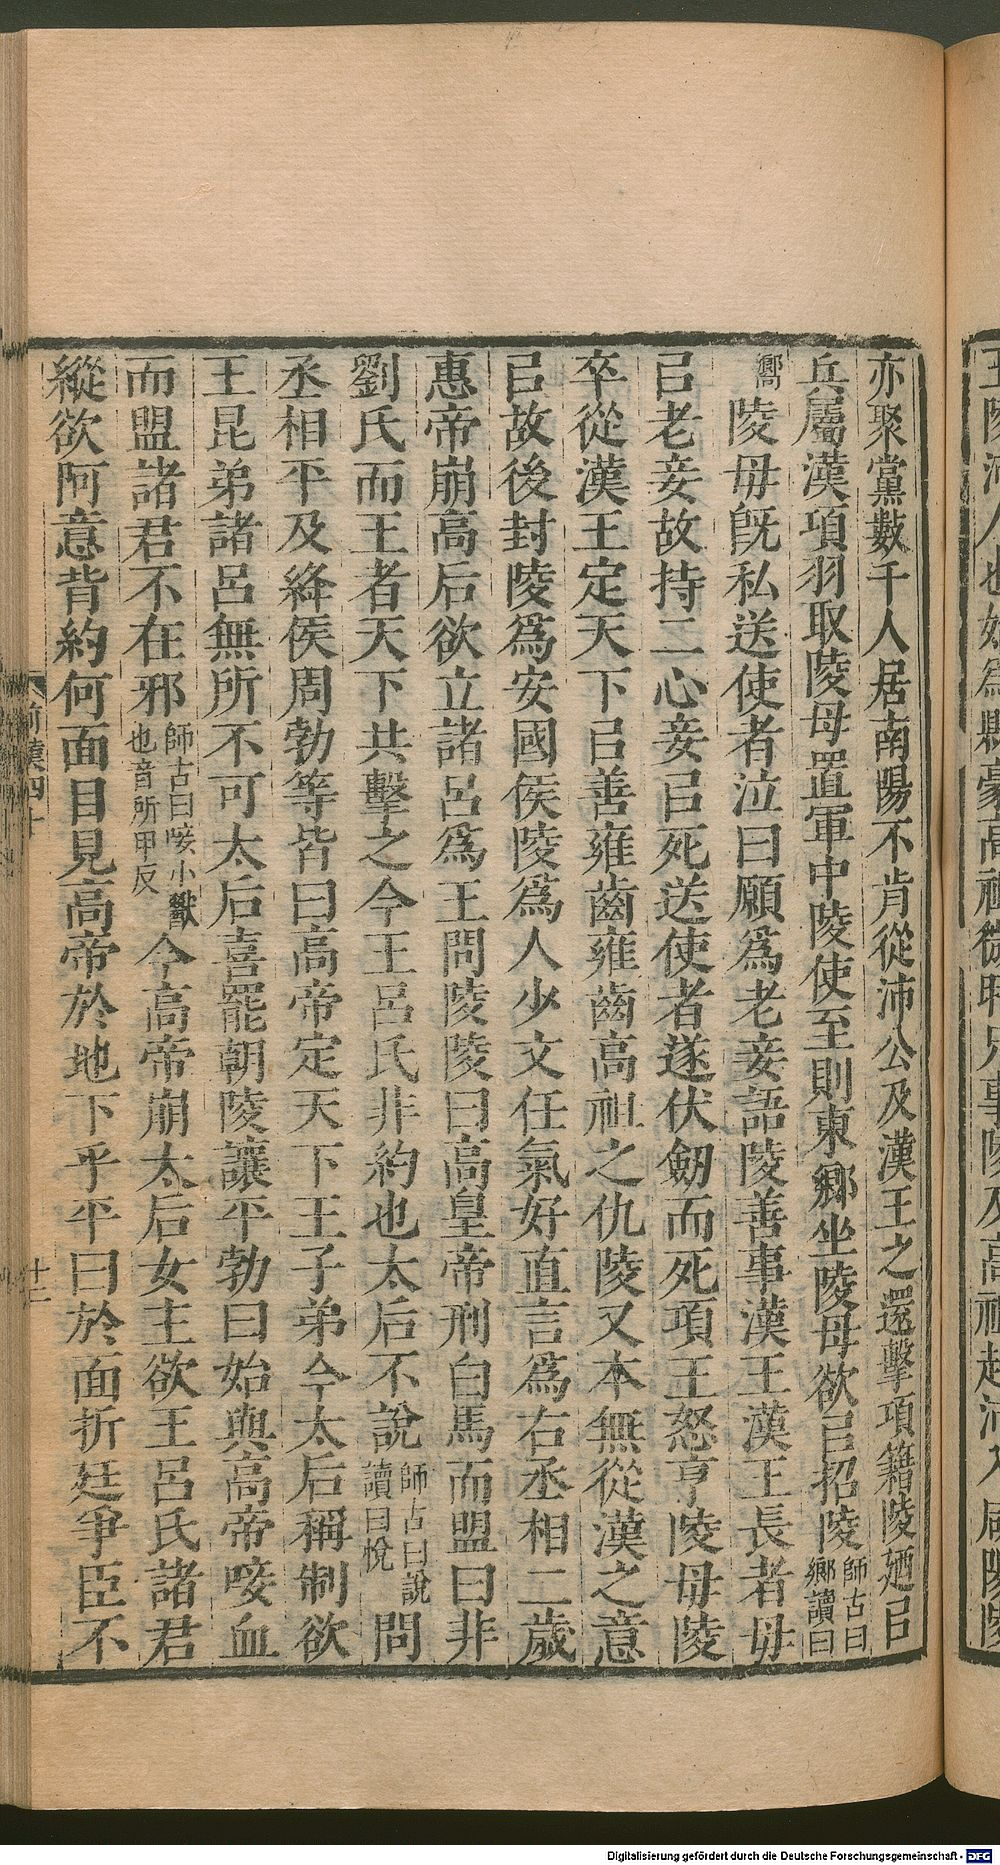 亦聚黨數千人居南陽不肯從沛公及漢王之還擊項籍陵廼㠯
兵屬漢項羽取陵母置軍中陵使至則東鄉坐陵母欲㠯招陵師古曰鄉讀曰
嚮陵母旣私送使者泣曰願爲老妾語陵善事漢王漢王長者毋
㠯老妾故持二心妾㠯死送使者遂伏劒而死項王怒亨陵母陵
卒從漢王定天下㠯善雍齒雍齒高祖之仇陵又本無從漢之意
㠯故後封陵爲安國侯陵爲人少文任氣好直言爲右丞相二歲
惠帝崩高后欲立諸呂爲王問陵陵曰高皇帝刑白馬而盟曰非
劉氏而王者天下共擊之今王呂氏非約也太后不說師古曰說讀曰悅問
丞相平及絳侯周勃等皆曰高帝定天下王子弟今太后稱制欲
王昆弟諸呂無所不可太后喜罷朝陵讓平勃曰始與高帝唼血
而盟諸君不在邪師古曰唼小歠也音所甲反今高帝崩太后女主欲王呂氏諸君
縱欲阿意背約何面目見高帝於地下乎平曰於面折廷爭臣不
前漢四十
十二
Digitalisierung gefördert durch die Deutsche Forschungsgemeinschaft - DFG